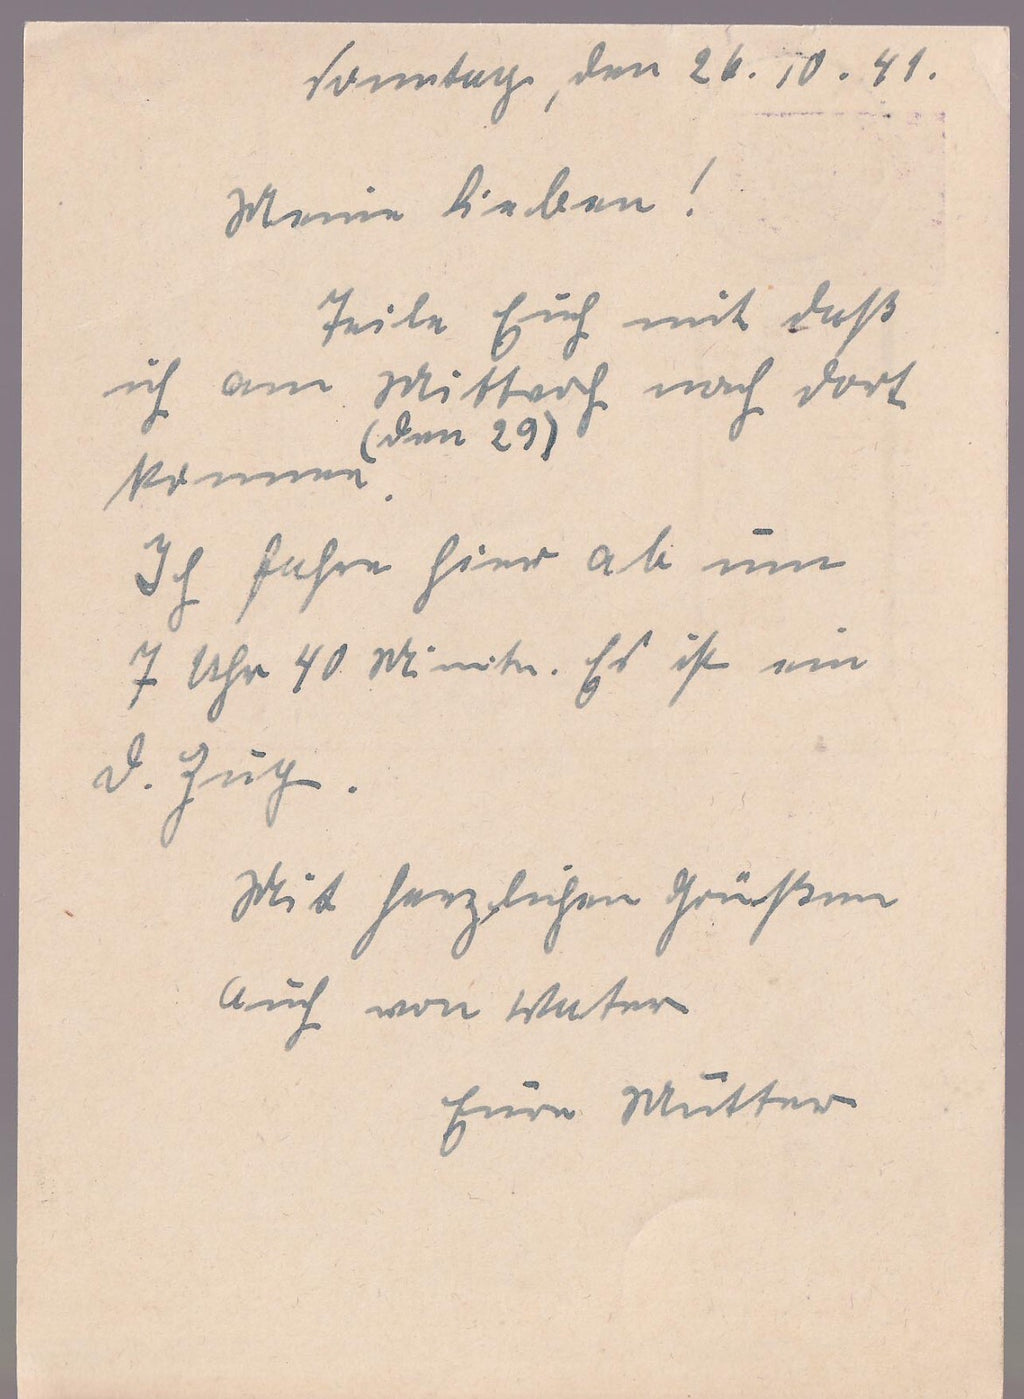 Sonntag, den 26. 10. 41.
Meine lieben!
Teile Euch mit daß
ich am Mittwoch nach dort
(den 29)
komme.
Ich fahre hier ab um
7 Uhr 40 Minuten. Es ist ein
D. Zug.
Mit herzlichen Grüßen
auch von Vater
Eure Mutter